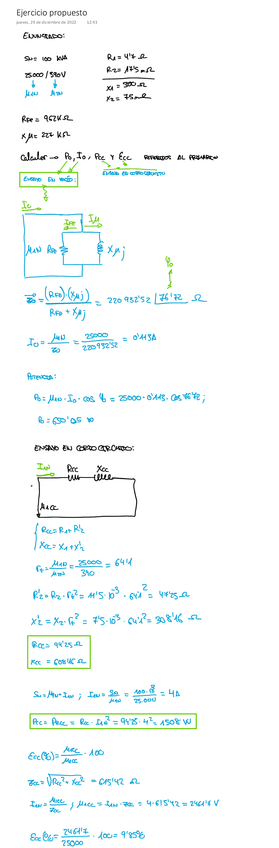 Ejercicio propuesto
jueves, 29 de diciembre de 2022 12:43
ENUNCIADO:
Sn = 100 KVA
25000 / 390 V
R1 = 47 Ω
R2 = 11'5 mΩ
X1 = 300 Ω
X2 = 75 mΩ
RFe = 962 KΩ
Xμ = 227 KΩ
Calcular → Po, Io, Pcc y Ecc REFERIDOS AL PRIMARIO
ENSAYO EN VACÍO:
ENSAYO EN CORTOCIRCUITO
Io
IFe
Iμ
μ1N
RFe
Xμj
Zo = (RFe)·(Xμj) / RFe + Xμj = 220932'52 |76'72 Ω
Io = μ1N / Zo = 25000 / 220932'52 = 0'113A
POTENCIA:
Po = μ1N · Io · cos φo = 25000 · 0'113 · cos 76'72;
Po = 650'05 W
ENSAYO EN CORTO CIRCUITO:
I1N
Rcc
Xcc
μ1cc
Rcc = R1 + R'2
Xcc = X1 + X'2
rt = μ1N / μ2N = 25000 / 390 = 64'1
R'2 = R2 · rt² = 11'5 · 10⁻³ · 64'1² = 47'25 Ω
X'2 = X2 · rt² = 75 · 10⁻³ · 64'1² = 308'16 Ω
Rcc = 94'25 Ω
Xcc = 608'16 Ω
Sn = μ1N · I1N ; I1N = Sn / μ1N = 100·10³ / 25.000 = 4A
Pcc = PRcc = Rcc · I1N² = 94'25 · 4² = 1508 W
Ecc(%) = μ1cc / μ1N · 100
Zcc = √Rcc² + Xcc² = 615'42 Ω
I1N = μ1cc / Zcc ; μ1cc = I1N · Zcc = 4 · 615'42 = 2461'6 V
Ecc% = 2461'7 / 25000 · 100 = 9'85%